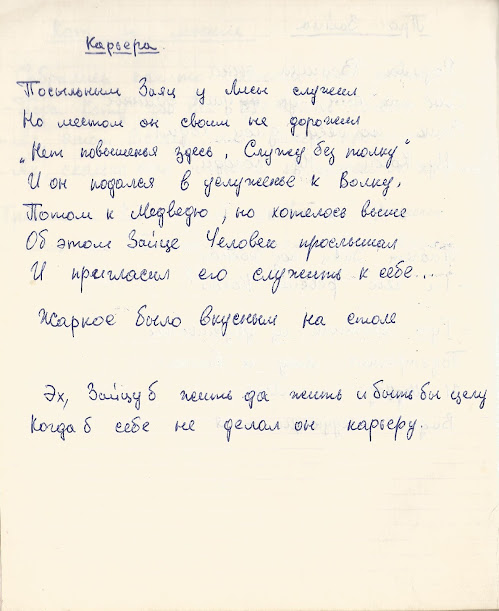 Карьера.
Посыльным Заяц у Лисы служил
Но местом он своим не дорожил
„Нет повышенья здесь, Служу без толку"
И он подался в услуженье к Волку,
Потом к Медведю, но хотелось выше
Об этом Зайце Человек прослышал
И пригласил его служить к себе...
Жаркое было вкусным на столе
Эх, Зайцу б жить да жить и быть бы целу
Когда б себе не делал он карьеру.